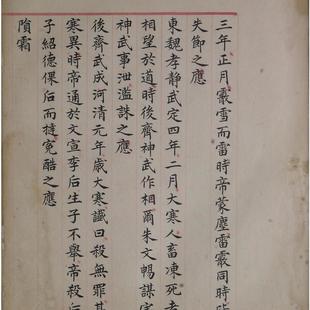 三年正月霰雪而雷時帝蒙塵雷霰同時皆
失節之應
東魏孝靜武定四年二月大寒人畜凍死者
相望於道時後齊神武作相爾朱文暢謀害
神武事泄濫誅之應
後齊武成河清元年歲大寒讖曰殺無罪其
寒異時帝通於文宣李后生子不舉帝殺后
子紹德倮后而撻冤酷之應
隕霜